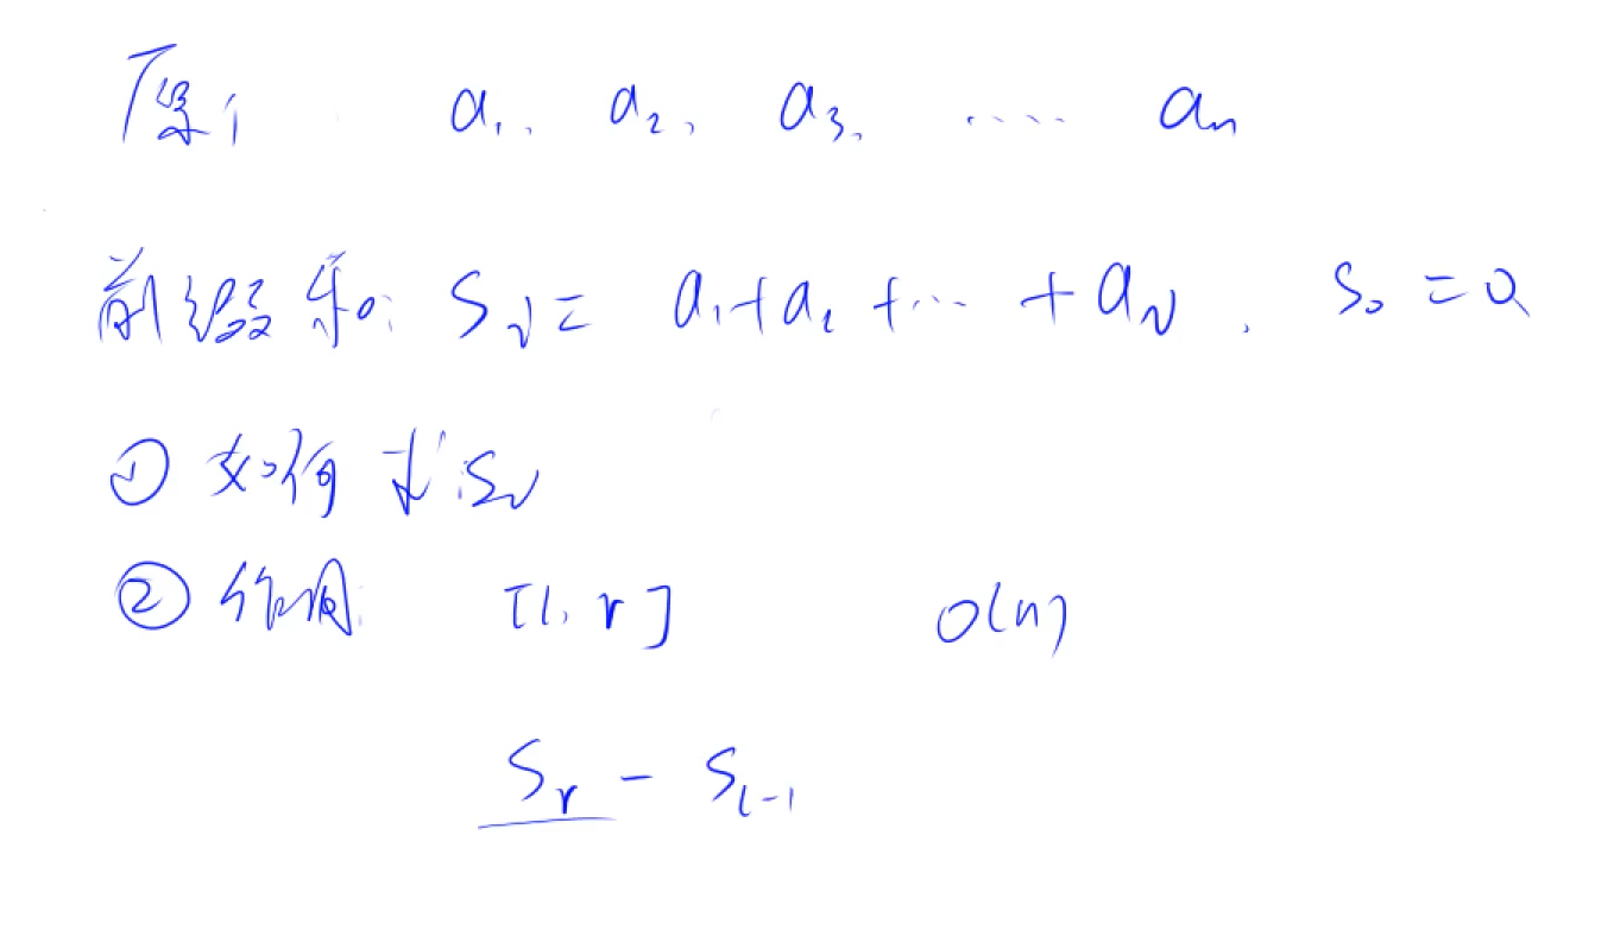 原: a₁, a₂, a₃, ..... aₙ
前缀和: Sᵢ = a₁+a₂+... + aᵢ. S₀ = 0
① 如何求Sᵢ
② 作用: [l, r] O(n)
Sᵣ - Sₗ₋₁